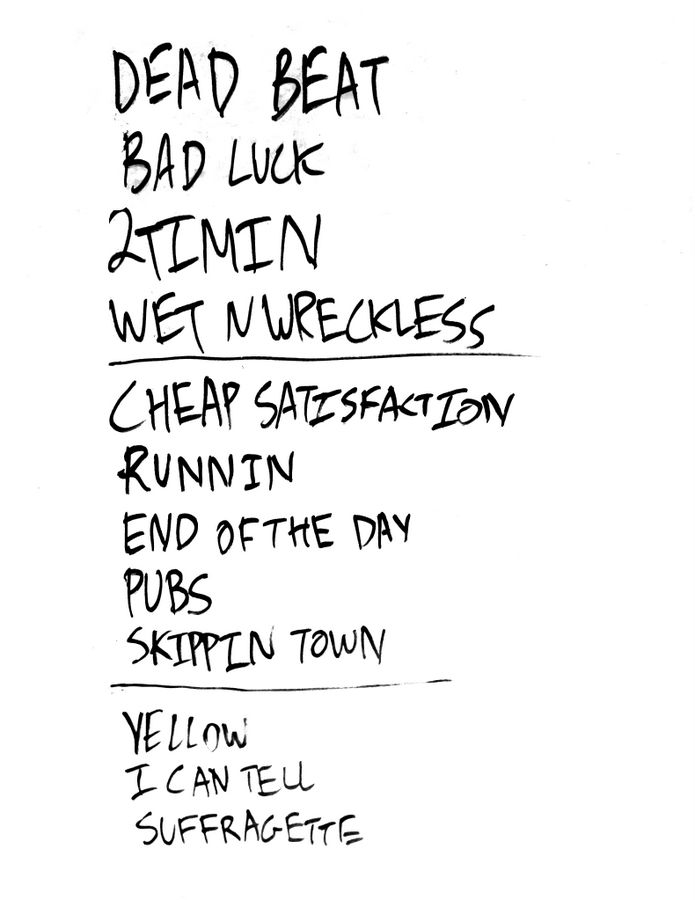 DEAD BEAT
BAD LUCK
2TIMIN
WET N WRECKLESS
CHEAP SATISFACTION
RUNNIN
END OF THE DAY
PUBS
SKIPPIN TOWN
YELLOW
I CAN TELL
SUFFRAGETTE